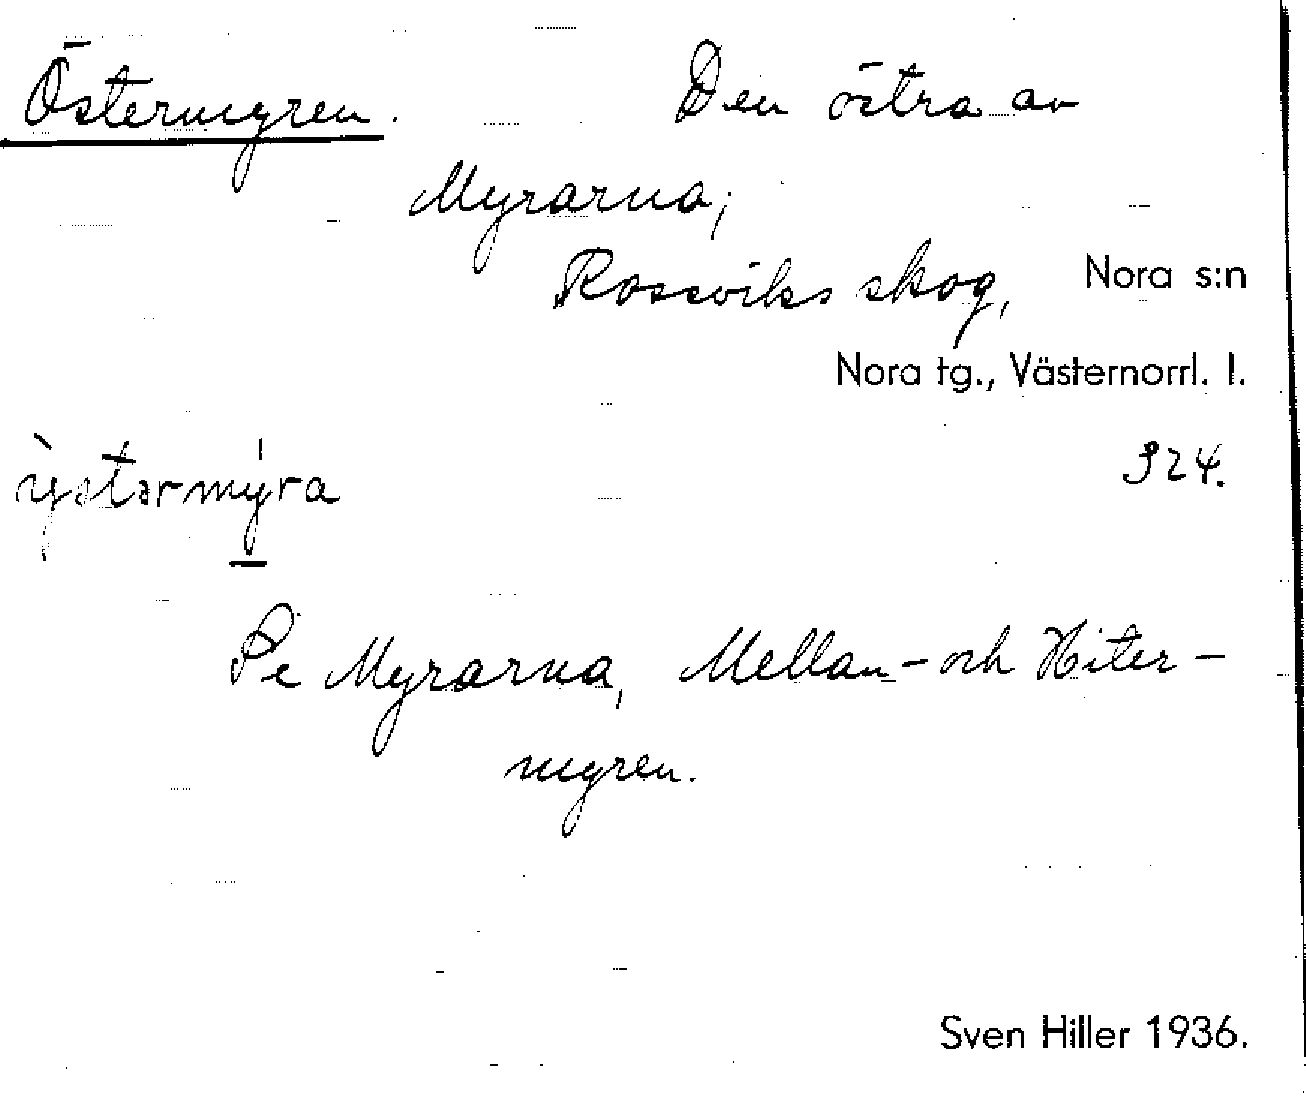 Östermyren. Den östra av
Myrarna;
Rossviks skog, Nora s:n
Nora tg., Västernorrl. l.
324.
ỳstərmýra
Se Myrarna, Mellan- och Hiter-
myren.
Sven Hiller 1936.